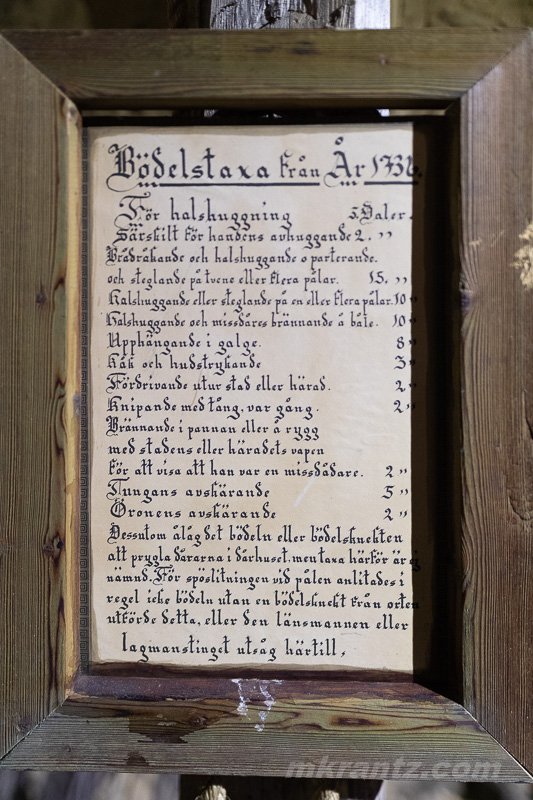 Bödelstaxa från År 1736.
För halshuggning 5. Daler.
Särskilt för handens avhuggande 2. "
Brådråkande och halshuggande o parterande.
och steglande på tvene eller flera pålar. 15. "
Halshuggande eller steglande på en eller flera pålar. 10 "
Halshuggande och missdåres brännande å båle. 10 "
Upphängande i galge. 8 "
Kåk och hudstrykande 3 "
Fördrivande utur stad eller härad. 2 "
Knipande med tång, var gång. 2 "
Brännande i pannan eller å rygg
med stadens eller häradets vapen
för att visa att han var en missdådare. 2 "
Tungans avskärande 5 "
Öronens avskärande 2 "
Dessutom ålåg det bödeln eller bödelsknekten
att prygla dårarna i dårhuset, men taxa härför är ej
nämnd. För spöslitningen vid pålen anlitades i
regel icke bödeln utan en bödelsknekt från orten
utförde detta, eller den länsmannen eller
lagmanstinget utsåg härtill.
mkrantz.com